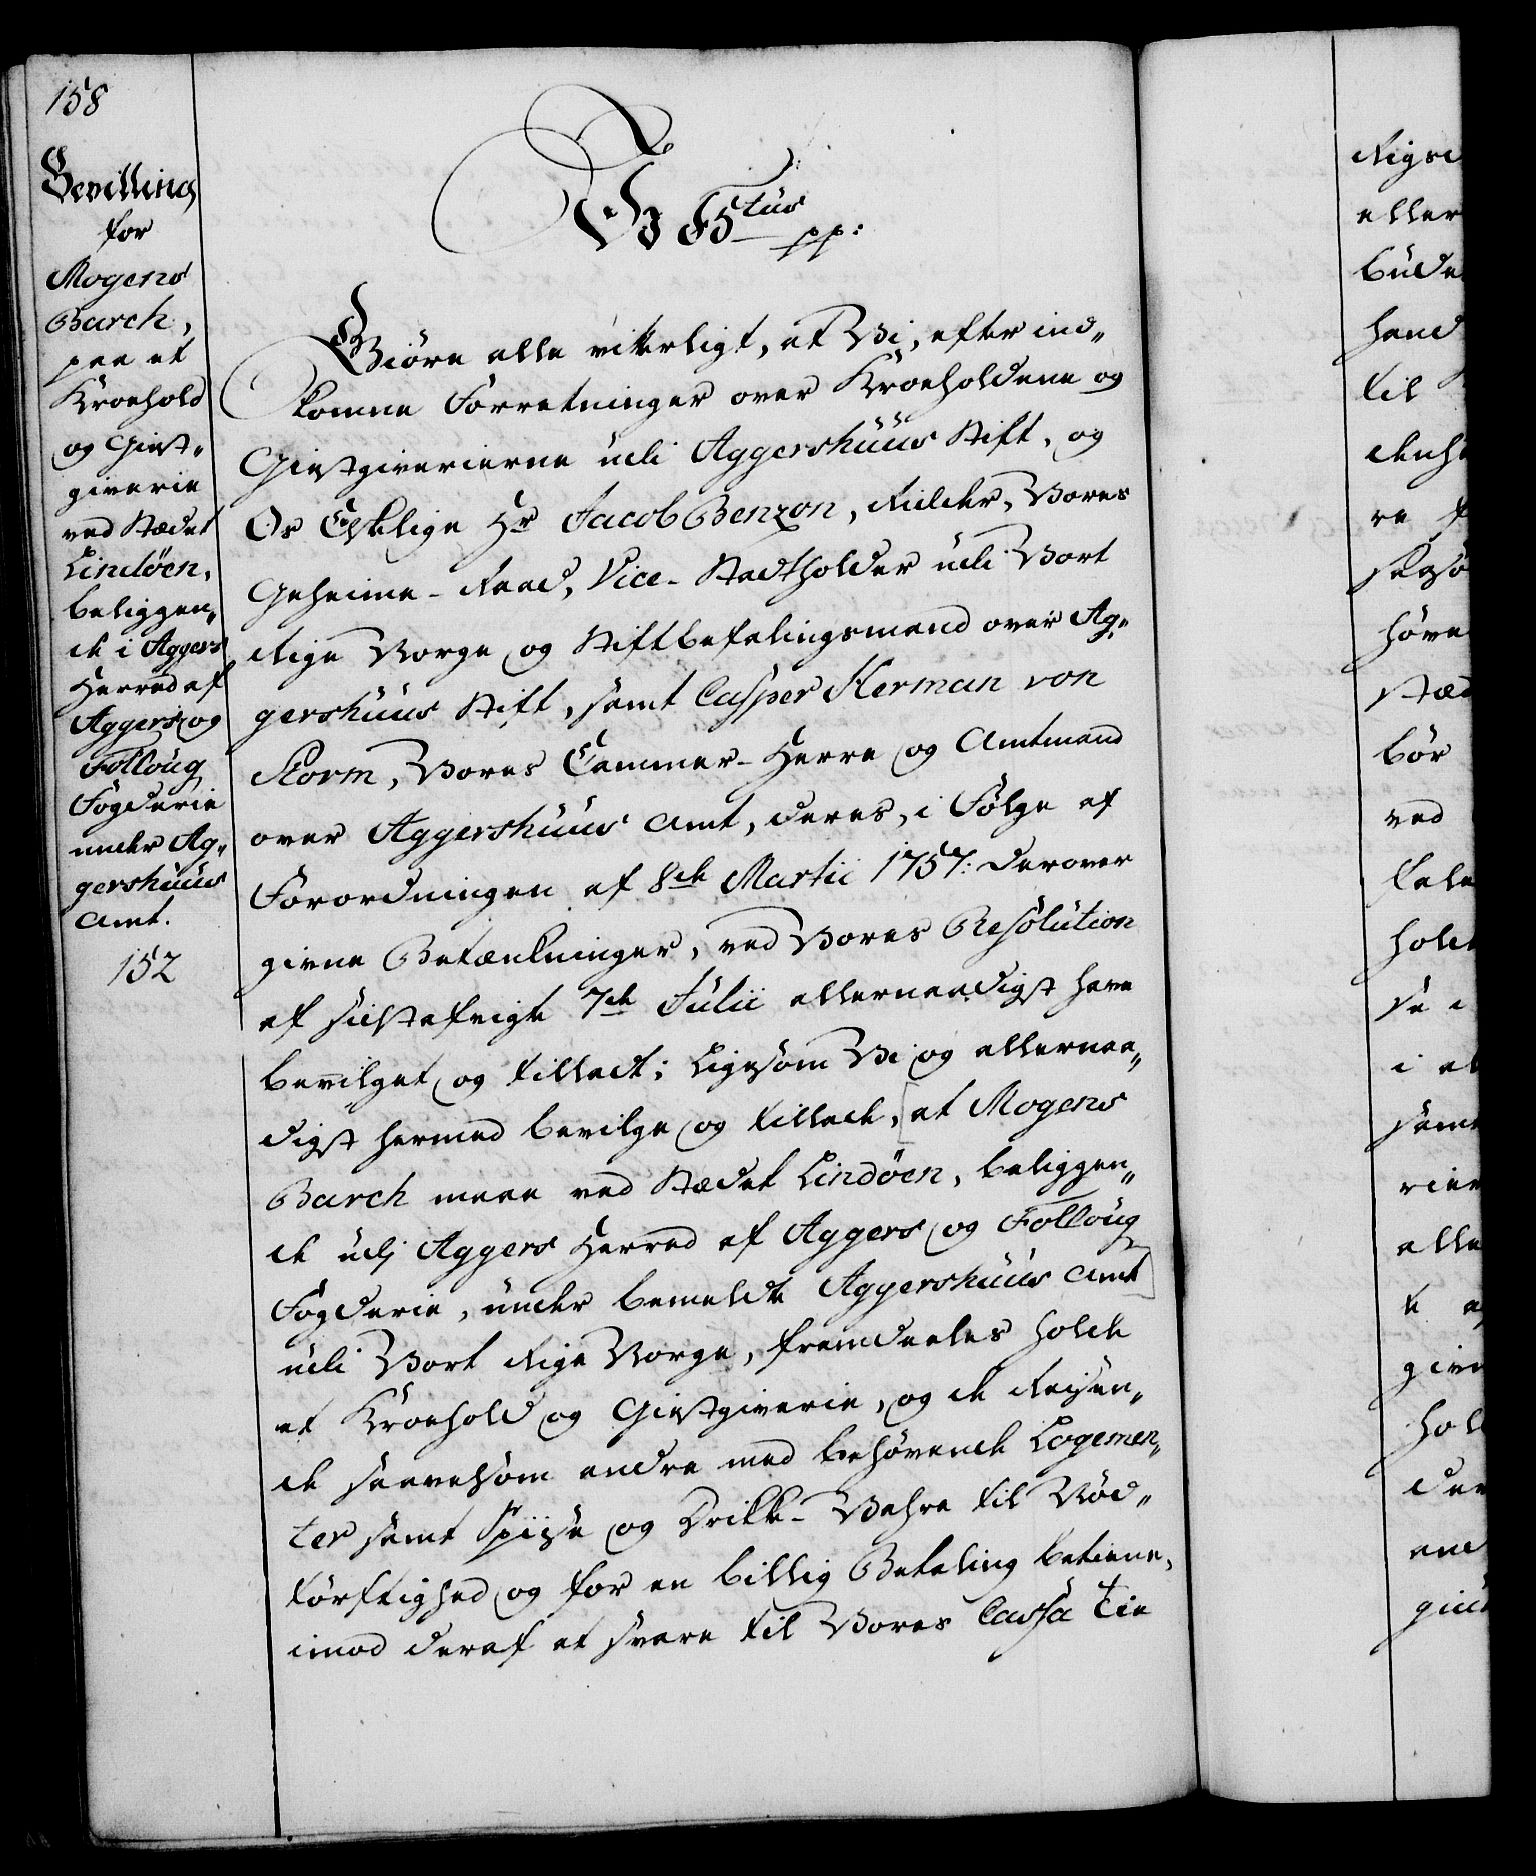 158
Bevilling
for
Mogens
Barch,
paa et
Kroehold
og Giest„
giverie
ved Stædet
Lindöen,
beliggen„
de i Aggers
Herred af
Aggers og
Folloug
Fogderie
under Ag„
gershuus
Amt.
152
V F5tus pp:
Giöre alle vitterligt, at Vi, efter ind„
komne Forretninger over Kroeholdene og
Giestgiverierne udi Aggershuus Stift, og
Os Elskelige Hr Jacob Benzon, Ridder, Vores
Geheime-Raad, Vice-Stadtholder udi Vort
Rige Norge og Stiftbefalingsmand over Ag„
gershuus Stift, samt Casper Herman von
Storm, Vores Cammer-Herre og Amtmand
over Aggershuus Amt, deres, i Fölge af
Forordningen af 8de Martii 1757. derover
givne Betænkninger, ved Vores Resolution
af sidstafvigte 7de Julii allernaadigst have
bevilget og tilladt; Ligesom Vi og allernaa„
digst hermed bevilge og tillade, at Mogens
Barch maae ved Stædet Lindöen, beliggen„
de udj Aggers Herred af Aggers og Folloug
Fogderie, under bemeldte Aggershuus Amt
udi Vort Rige Norge, fremdeeles holde
et Kroehold og Giestgiverie, og de Reisen„
de saavelsom andre med behövende Logemen„
ter samt Spiise og Drikke-Vahre til Nöd„
törftighed og for en billig Betaling betiene,
imod deraf at svare til Vores Cassa Tie
eller
bude
hand
til
ved
i
givn
hol